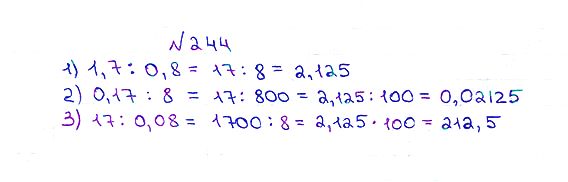 №244
1) 1,7 : 0,8 = 17 : 8 = 2,125
2) 0,17 : 8 = 17 : 800 = 2,125 : 100 = 0,02125
3) 17 : 0,08 = 1700 : 8 = 2,125 · 100 = 212,5